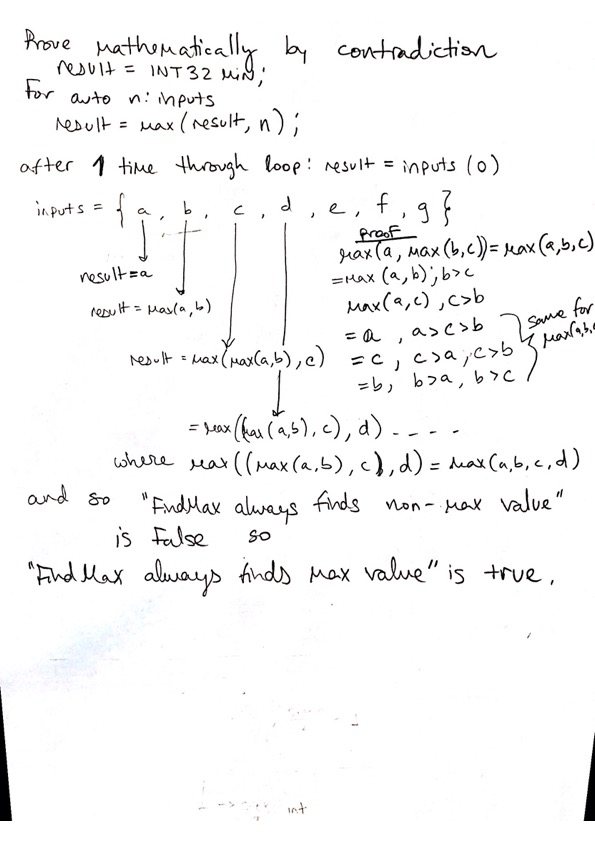 Prove mathematically by contradiction
result = INT32 MIN;
For auto n: inputs
result = max(result, n);
after 1 time through loop: result = inputs (0)
inputs = { a, b, c, d, e, f, g }
result = a
result = Max(a,b)
result = Max(Max(a,b), c)
= Max((Max(a,b), c), d) - - - -
Proof
Max(a, Max(b,c)) = Max(a,b,c)
= Max (a,b), b>c
Max(a,c), c>b
= a, a>c>b
= c, c>a, c>b
= b, b>a, b>c
same for
Max(a,b,c
where Max((Max(a,b), c), d) = Max(a,b,c,d)
and so "FindMax always finds non-max value"
is False so
"FindMax always finds max value" is true.
int